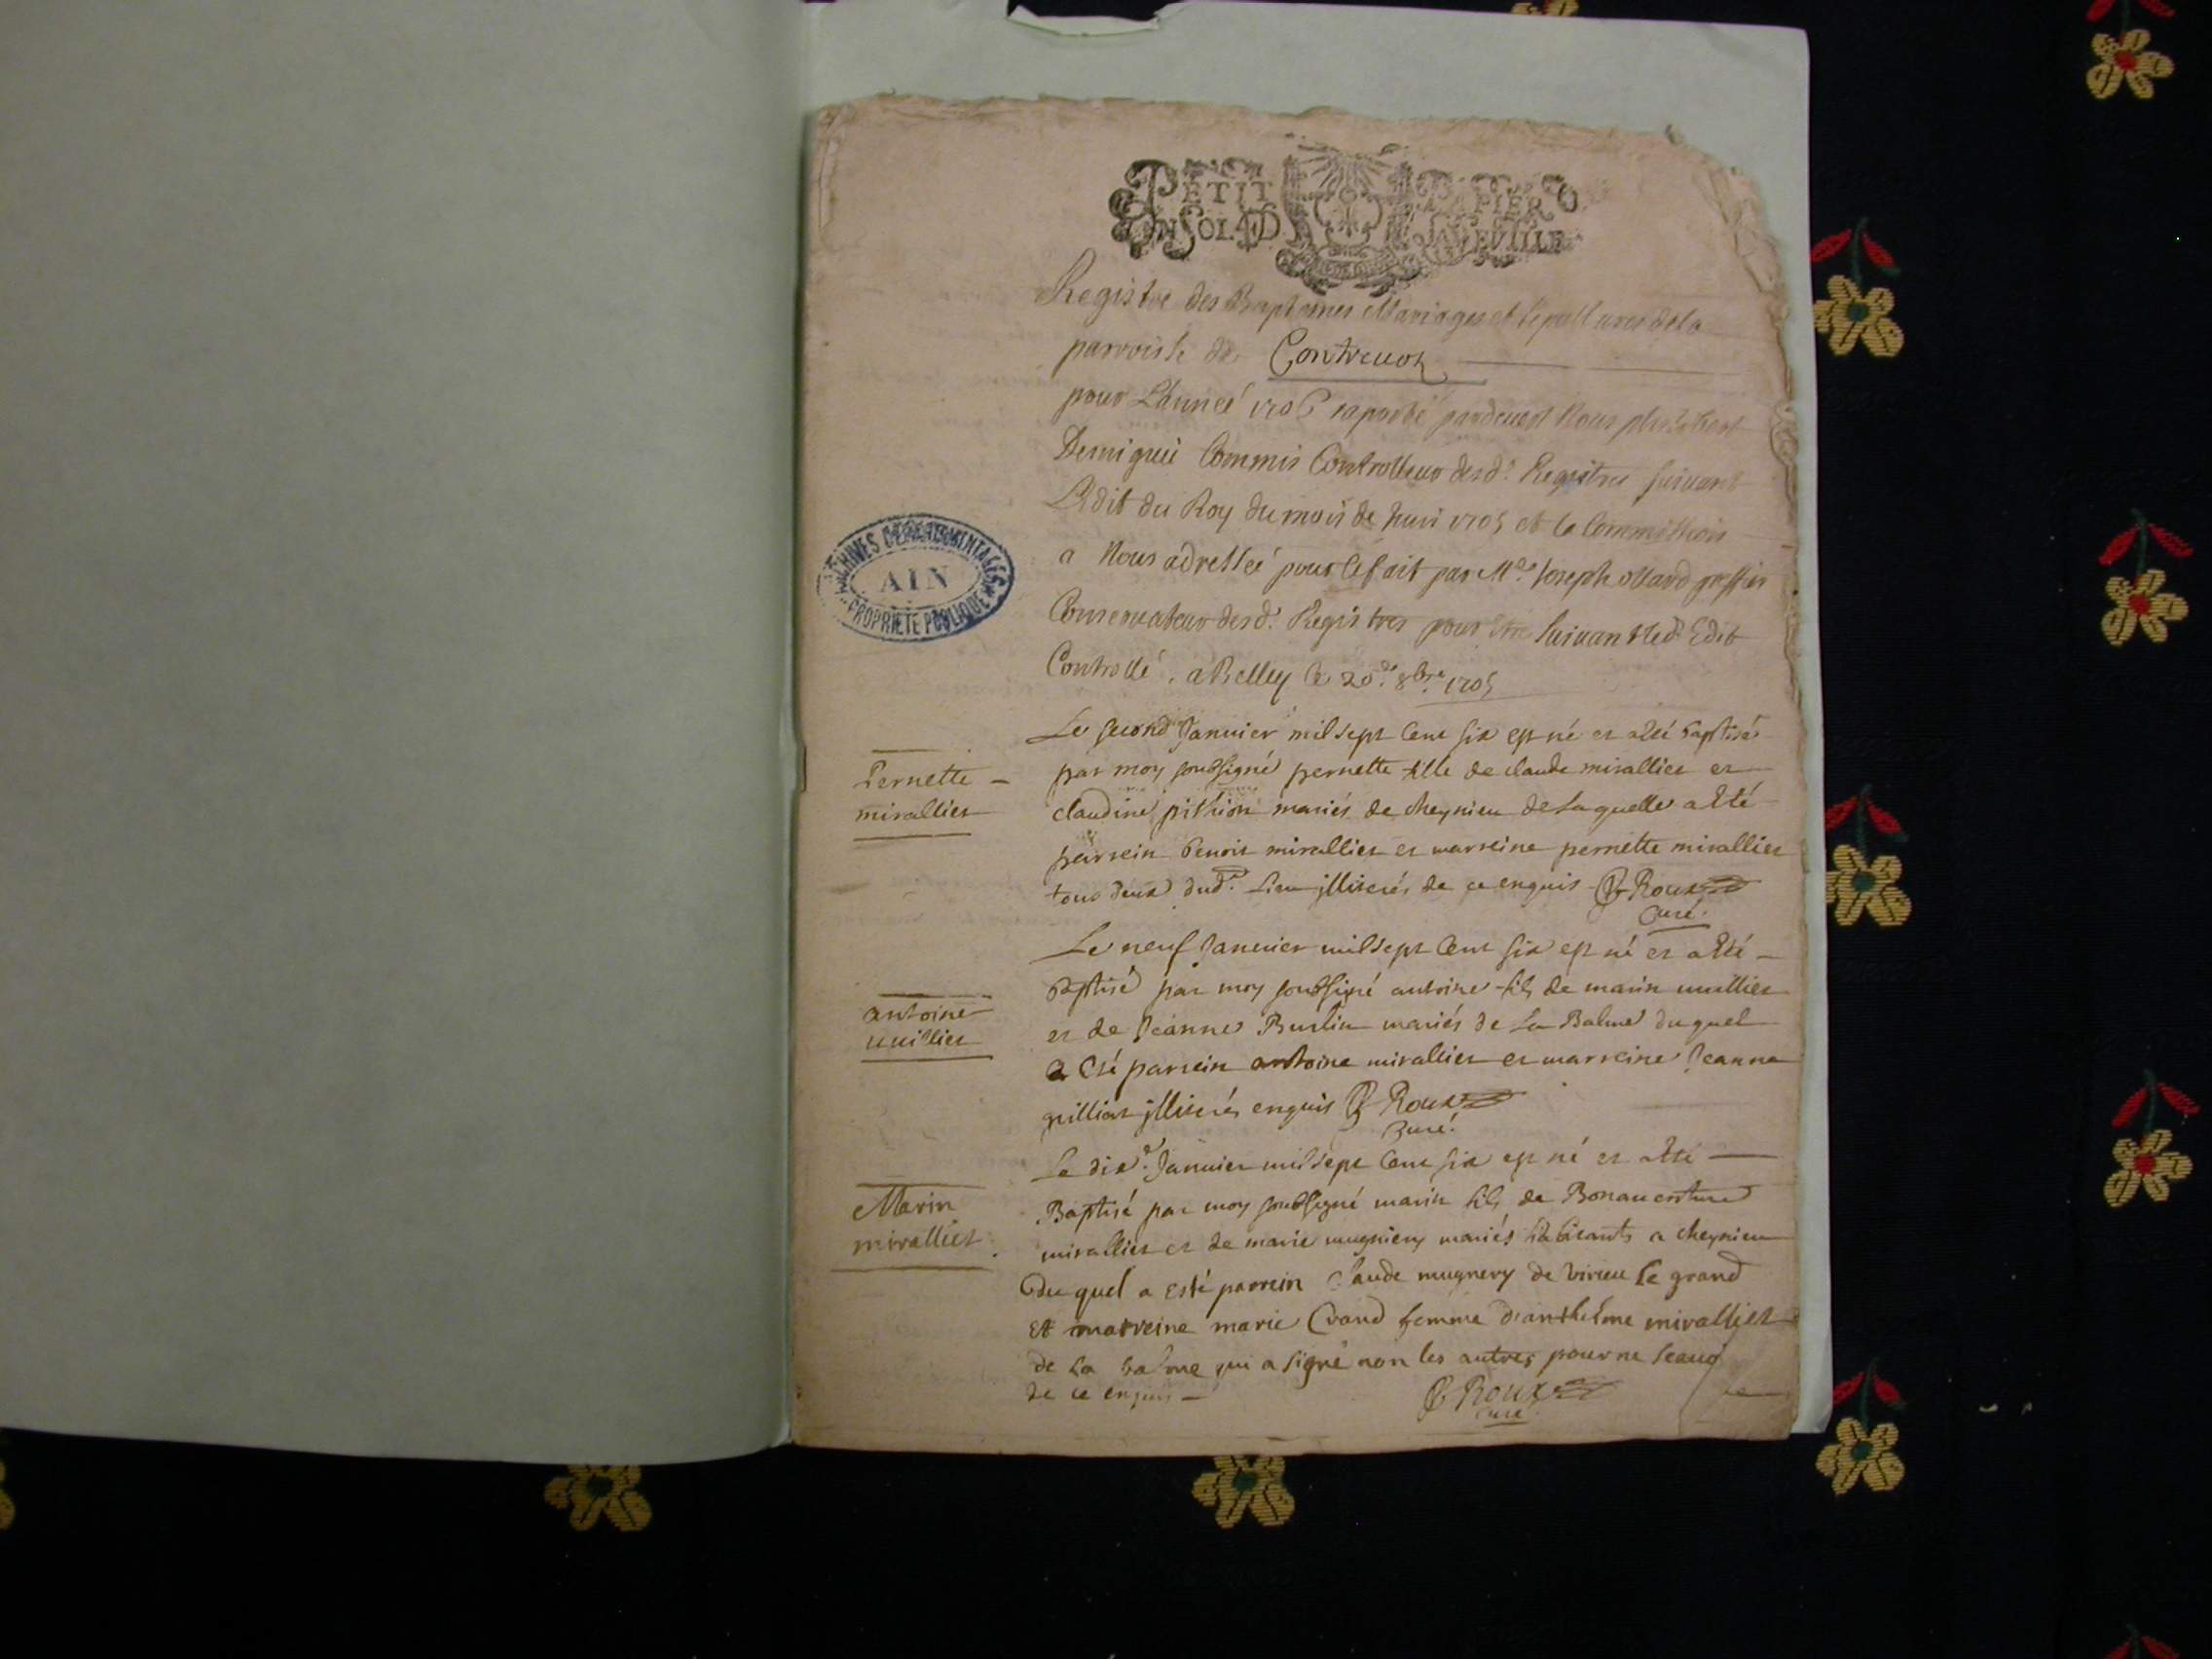 PETIT PAPIER
UN SOL 4 D
Registre des Baptemes Mariages et Sepultures de la
parroisse de Contrevoz
pour L'année 1706 raporté pardevant Nous philibert
Commis Controlleur desd. Registres suivant
L'Edit du Roy du mois de 1705 et la Commission
a Nous adressée pour Ce fait par Me Joseph greffier
Conservateur desd. Registres pour être suivant led. Edit
Controllé. a Belley le 20e 8bre 1705
Le second Janvier mil sept Cent six est né et a été baptisé
Pernette
mirallier
par moy soubsigné pernette fille de claude mirallier et
claudine pithion mariés de cheynieu de laquelle a Eté
parrein benoit mirallier et marreine pernette mirallier
tous deux dud. Lieu jlliterés de ce enquis Roux
Curé.
Le neuf Janvier mil sept Cent six est né et a Eté
antoine
vuillier
Baptisé par moy soubsigné antoine fils de marin vuillier
et de Jeanne Burlin mariés de La Balme duquel
a Eté parrein antoine mirallier et marreine Jeanne
jlliterés enquis Roux
Curé.
Le dixe. Janvier mil sept Cent six est né et a Eté
Marin
mirallier.
Baptisé par moy soubsigné marin fils de Bonaventure
mirallier et de marie mugniery mariés habitants a cheynieu
Du quel a esté parrein Claude mugnery de Virieu le grand
Et marreine marie Crand femme d'anthelme mirallier
de La balme qui a signé non les autres pour ne scavo
de ce enquis Roux
curé
ARCHIVES DEPARTEMENTALES
AIN
PROPRIETE PUBLIQUE